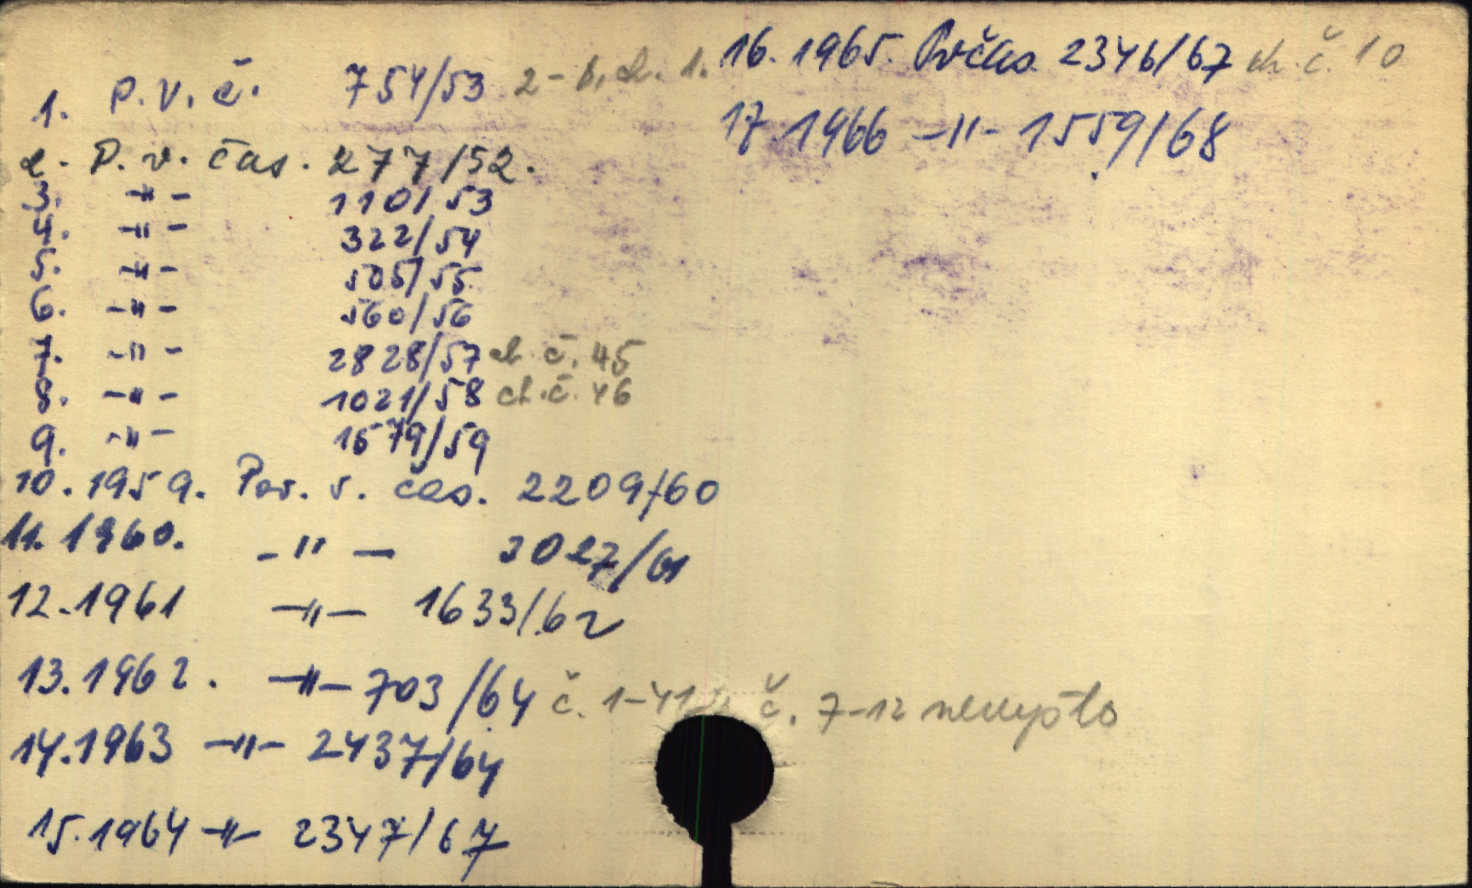 1. P. V. č. 754/53 2-6, ch. 1.
2. P. v. čas. 277/52.
3. -"- 1101/53
4. -"- 322/54
5. -"- 505/55
6. -"- 560/56
7. -"- 2828/57 ch. č. 45
8. -"- 1021/58 ch. č. 46
9. -"- 1579/59
10. 1959. Pov. v. čas. 2209/60
11. 1960. -"- 3027/61
12. 1961 -"- 1633/62
13. 1962. -"- 703/64 č. 1-4 č. 7-12 nevyšlo
14. 1963 -"- 2437/64
15. 1964 -"- 2347/67
16. 1965. Pvčas 2346/67 ch. č. 10
17. 1966 -"- 1559/68